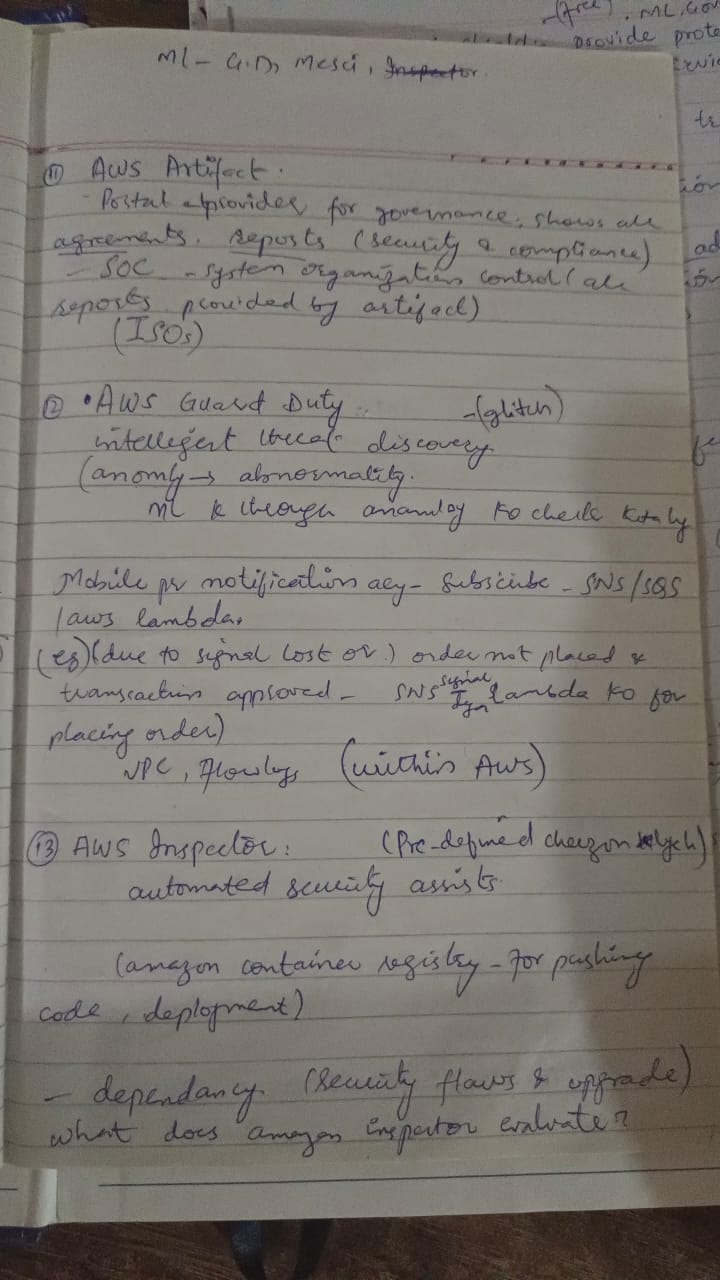 (free). ML, Gov
provide prote
ML - G.D, Mesci, Inspector.
⑪ AWS Artifact.
- Postal provides for governance, shows all
agreements, reposts (security & compliance)
- SOC - system organization control (all
reposts provided by artifact)
(ISOs)
⑫ • AWS Guard Duty -(glitch)
intellegert threat discovery
(anomly → abnormality.
ML k through anamloy ko check
Mobile pr notification aey - subscribe - SNS/SQS
/aws lambda,
(eg) (due to signal lost or.) order not placed &
transaction approved - SNS signal lambda ko for
placing order)
VPC, Flowlogs (within AWS)
⑬ AWS Inspector: (Pre-defined)
automated security assists.
(amazon container registry - for pushing
code, deployment)
- dependancy. (security flaws & upgrade)
what does amazon inspector evaluate?